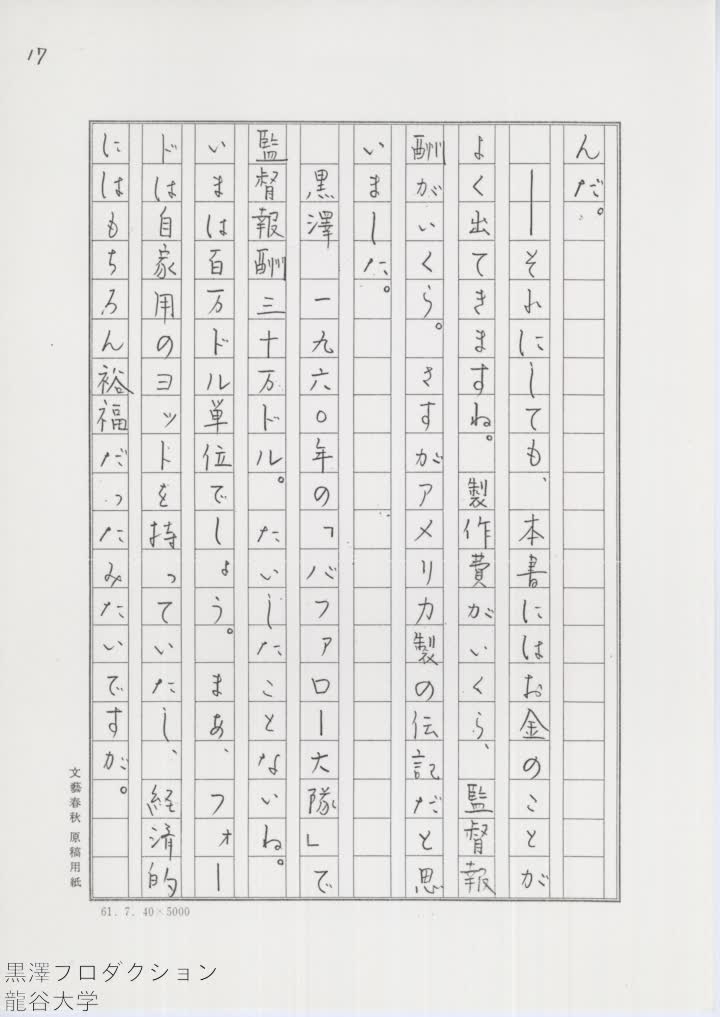 17
んだ。
――それにしても、本書にはお金のことが
よく出てきますね。製作費がいくら、監督報
酬がいくら。さすがアメリカ製の伝記だと思
いました。
黒澤　一九六〇年の「バファロー大隊」で
監督報酬三十万ドル。たいしたことないね。
いまは百万ドル単位でしょう。まあ、フォー
ドは自家用のヨットを持っていたし、経済的
にはもちろん裕福だったみたいですが。
文藝春秋 原稿用紙
61. 7. 40×5000
黒澤プロダクション
龍谷大学